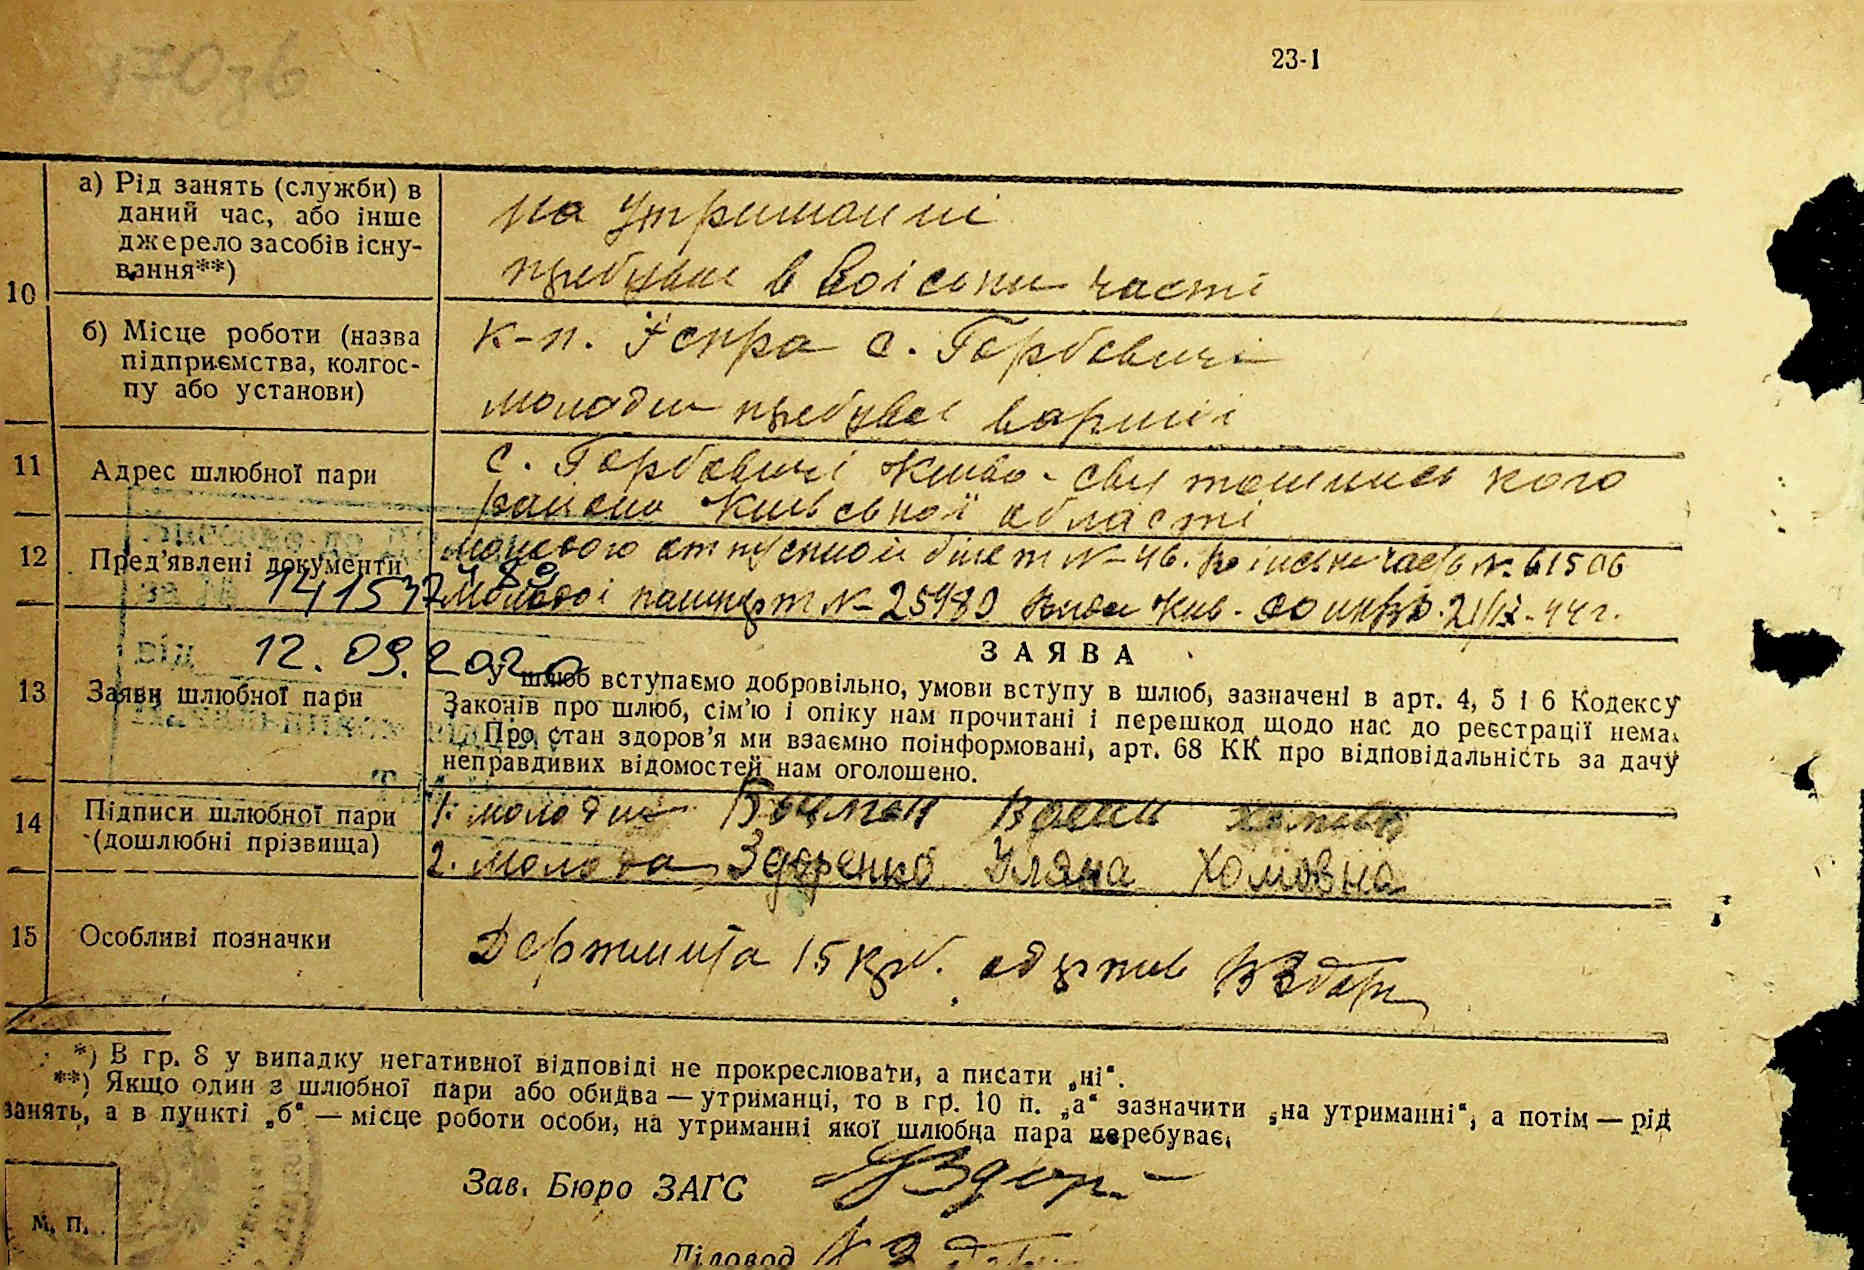 170зв
23-1
10
а) Рід занять (служби) в
даний час, або інше
джерело засобів існу-
вання**)
на утриманні
пребуває в воіськи часті
б) Місце роботи (назва
підприємства, колгос-
пу або установи)
к-п. Іскра с. Горбовичі
молодий пребуває в армії
11
Адрес шлюбної пари
с. Горбовичі Києво-святошинського
району Київської області
12
Пред'явлені документи
отпускной білет №-46. воінська часть №. 61506
141537
молодої пашпорт №-25980 Киї.
від 12.09.2020
13
Заяви шлюбної пари
ЗАЯВА
У шлюб вступаємо добровільно, умови вступу в шлюб, зазначені в арт. 4, 5 і 6 Кодексу
Законів про шлюб, сім'ю і опіку нам прочитані і перешкод щодо нас до реєстрації нема.
Про стан здоров'я ми взаємно поінформовані, арт. 68 КК про відповідальність за дачу
неправдивих відомостей нам оголошено.
14
Підписи шлюбної пари
(дошлюбні прізвища)
1. молодий
2. молода Здоренко Уляна Хомовна
15
Особливі позначки
Держмита 15 крб.
*) В гр. 8 у випадку негативної відповіді не прокреслювати, а писати „ні“.
**) Якщо один з шлюбної пари або обидва — утриманці, то в гр. 10 п. „а“ зазначити „на утриманні“, а потім — рід
занять, а в пункті „б“ — місце роботи особи, на утриманні якої шлюбна пара перебуває.
Зав. Бюро ЗАГС
М. П.
Діловод